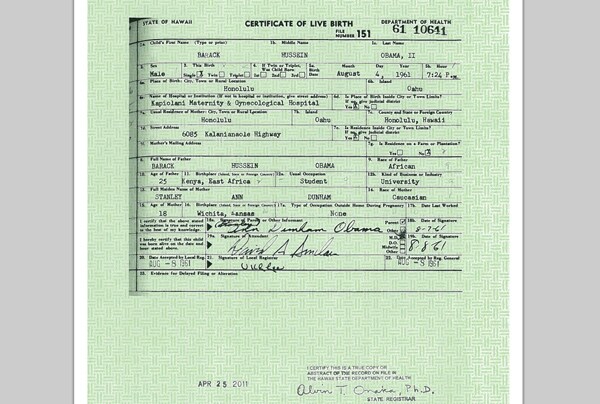 STATE OF HAWAII CERTIFICATE OF LIVE BIRTH DEPARTMENT OF HEALTH
FILE NUMBER 151 61 10641
1a. Child's First Name (Type or print) 1b. Middle Name 1c. Last Name
BARACK HUSSEIN OBAMA, II
2. Sex 3. This Birth 4. If Twin or Triplet, Was Child Born 5a. Birth Date Month Day Year 5b. Hour
Male Single X Twin Triplet 1st 2nd 3rd August 4, 1961 7:24 P.M.
6a. Place of Birth: City, Town or Rural Location 6b. Island
Honolulu Oahu
6c. Name of Hospital or Institution (If not in hospital or institution, give street address) 6d. Is Place of Birth Inside City or Town Limits? If no, give judicial district
Kapiolani Maternity & Gynecological Hospital Yes X No
7a. Usual Residence of Mother: City, Town or Rural Location 7b. Island 7c. County and State or Foreign Country
Honolulu Oahu Honolulu, Hawaii
7d. Street Address 7e. Is Residence Inside City or Town Limits? If no, give judicial district
6085 Kalanianaole Highway Yes X No
7f. Mother's Mailing Address 7g. Is Residence on a Farm or Plantation?
Yes No X
8. Full Name of Father 9. Race of Father
BARACK HUSSEIN OBAMA African
10. Age of Father 11. Birthplace (Island, State or Foreign Country) 12a. Usual Occupation 12b. Kind of Business or Industry
25 Kenya, East Africa Student University
13. Full Maiden Name of Mother 14. Race of Mother
STANLEY ANN DUNHAM Caucasian
15. Age of Mother 16. Birthplace (Island, State or Foreign Country) 17a. Type of Occupation Outside Home During Pregnancy 17b. Date Last Worked
18 Wichita, Kansas None
I certify that the above stated information is true and correct to the best of my knowledge. 18a. Signature of Parent or Other Informant Parent Other 18b. Date of Signature
Ann Dunham Obama 8-7-61
I hereby certify that this child was born alive on the date and hour stated above. 19a. Signature of Attendant M.D. D.O. Midwife Other 19b. Date of Signature
David A Sinclair 8-8-61
20. Date Accepted by Local Reg. 21. Signature of Local Registrar 22. Date Accepted by Reg. General
AUG -8 1961 U K L Lee AUG -8 1961
23. Evidence for Delayed Filing or Alteration
APR 25 2011
I CERTIFY THIS IS A TRUE COPY OR
ABSTRACT OF THE RECORD ON FILE IN
THE HAWAII STATE DEPARTMENT OF HEALTH
Alvin T. Onaka, Ph.D.
STATE REGISTRAR